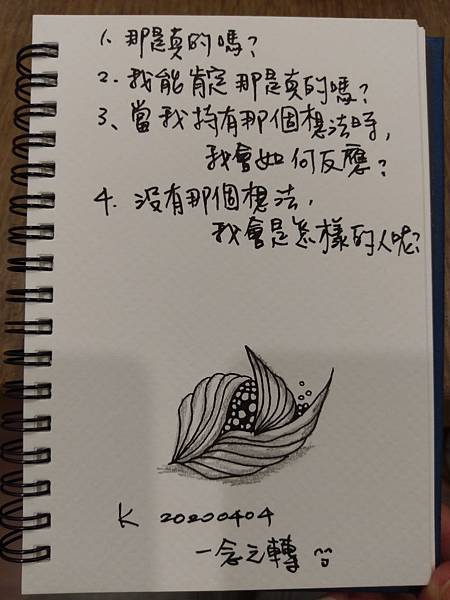 1. 那是真的嗎?
2. 我能肯定那是真的嗎?
3、當我持有那個想法時,
我會如何反應?
4. 沒有那個想法,
我會是怎樣的人呢?
K 20200404
一念之轉